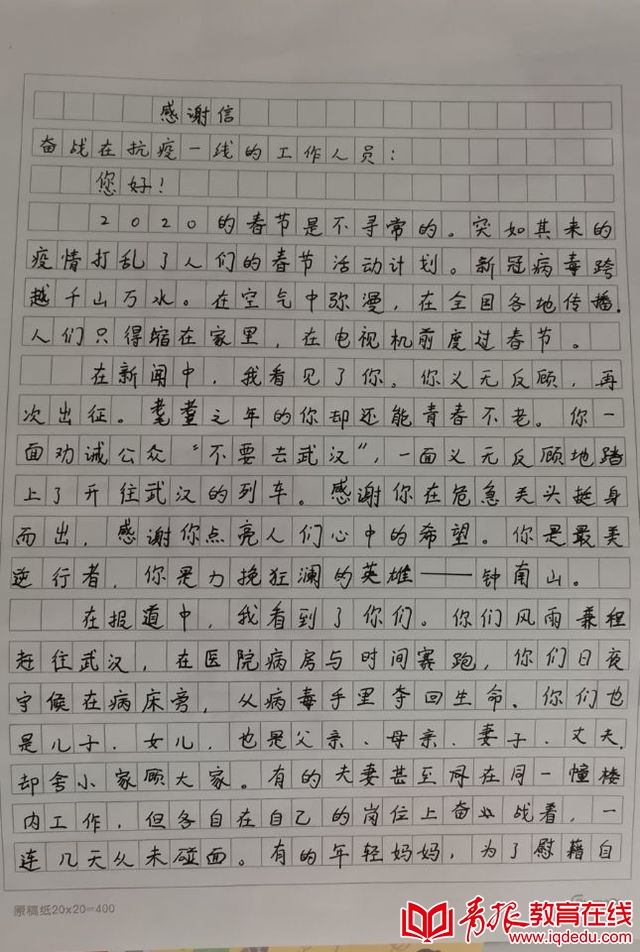 感谢信
奋战在抗疫一线的工作人员：
您好！
2020的春节是不寻常的。突如其来的
疫情打乱了人们的春节活动计划。新冠病毒跨
越千山万水。在空气中弥漫，在全国各地传播.
人们只得缩在家里，在电视机前度过春节。
在新闻中，我看见了你。你义无反顾，再
次出征。耄耋之年的你却还能青春不老。你一
面劝诫公众“不要去武汉”，一面义无反顾地踏
上了开往武汉的列车。感谢你在危急关头挺身
而出，感谢你点亮人们心中的希望。你是最美
逆行者，你是力挽狂澜的英雄——钟南山。
在报道中，我看到了你们。你们风雨兼程
赶往武汉，在医院病房与时间赛跑，你们日夜
守候在病床旁，从病毒手里夺回生命.你们也
是儿子、女儿，也是父亲、母亲、妻子、丈夫.
却舍小家顾大家。有的夫妻甚至同在同一幢楼
内工作，但各自在自己的岗位上奋战着，一
连几天从未碰面。有的年轻妈妈，为了慰藉自
原稿纸20×20=400
青报教育在线
www.iqdedu.com